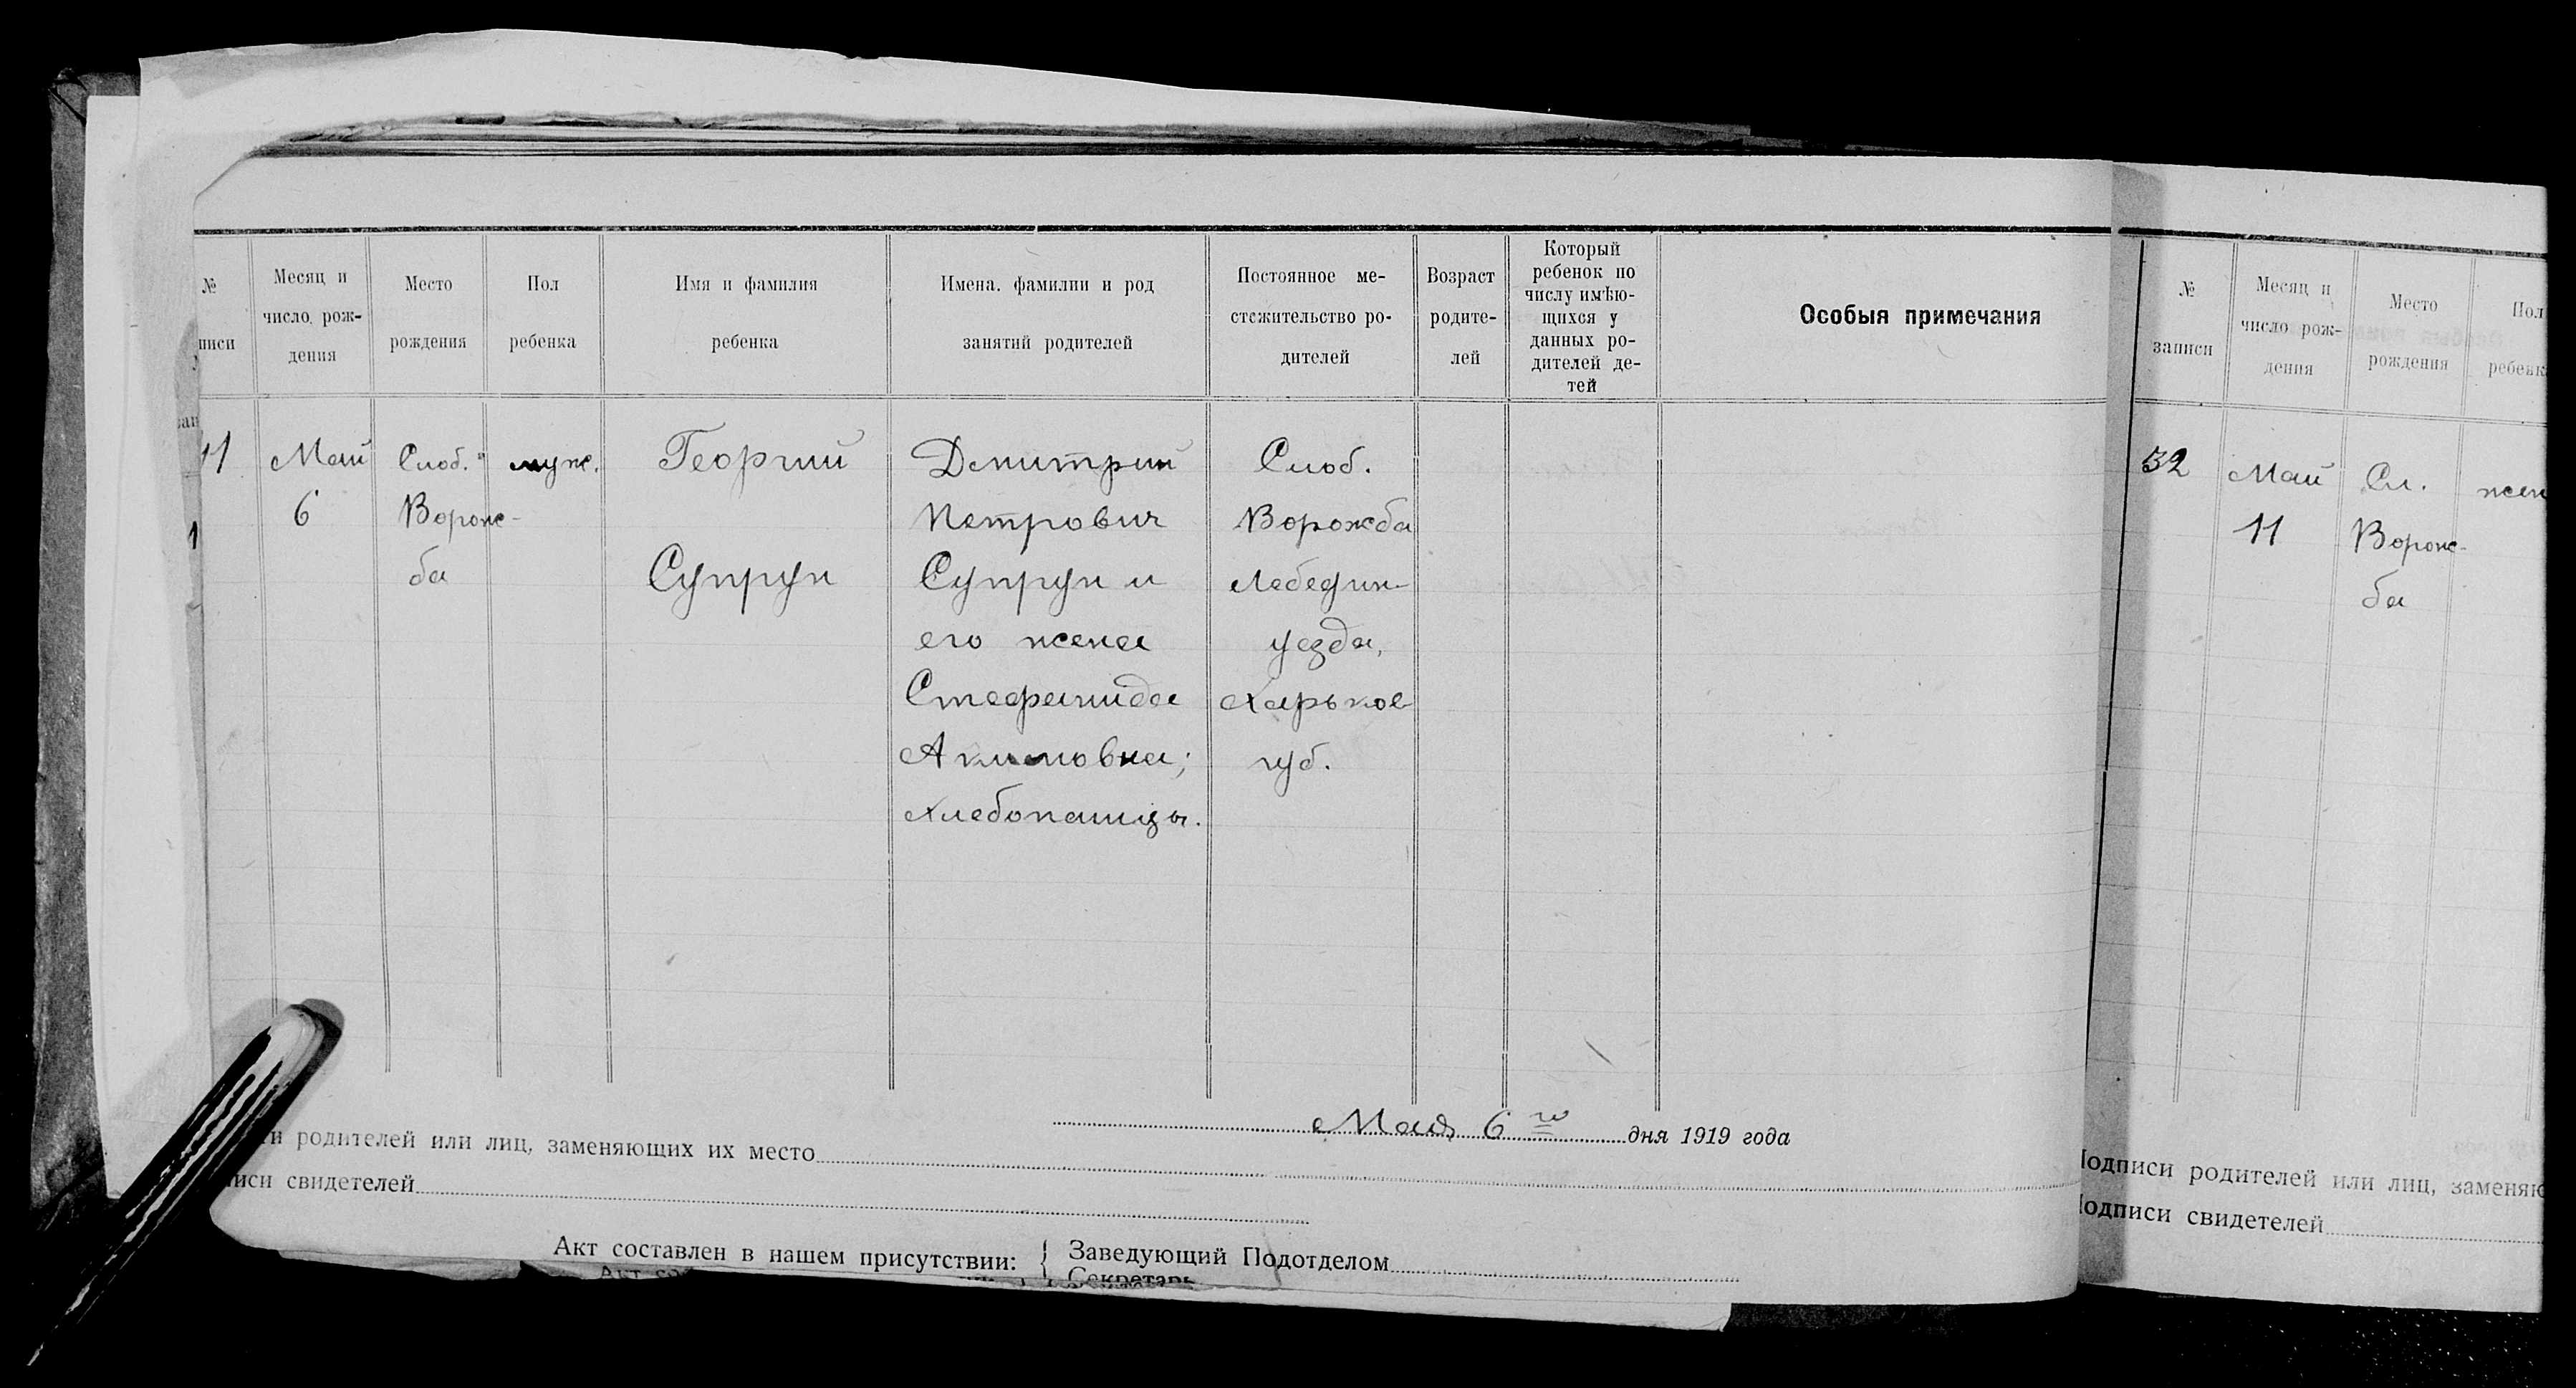 №
писи
Месяц и
число рож-
дения
Место
рождения
Пол
ребенка
Имя и фамилия
ребенка
Имена, фамилии и род
занятий родителей
Постоянное ме-
стожительство ро-
дителей
Возраст
родите-
лей
Который
ребенок по
числу имѣю-
щихся у
данных ро-
дителей де-
тей
Особыя примечания
11
Май
6
Слоб.
Ворож-
ба
муж.
Георгий
Супрун
Дмитрий
Петрович
Супрун и
его жена
Стефанида
Акимовна;
хлебопашцы.
Слоб.
Ворожба
Лебедин-
уезда,
Харьков
губ.
Мая 6 го дня 1919 года
и родителей или лиц, заменяющих их место
иси свидетелей
Акт составлен в нашем присутствии: { Заведующий Подотделом
Секретарь
№
записи
Месяц и
число рож-
дения
Место
рождения
Пол
ребенк
32
Май
11
Сл.
Ворож-
ба
жен
Подписи родителей или лиц, заменяю
Подписи свидетелей